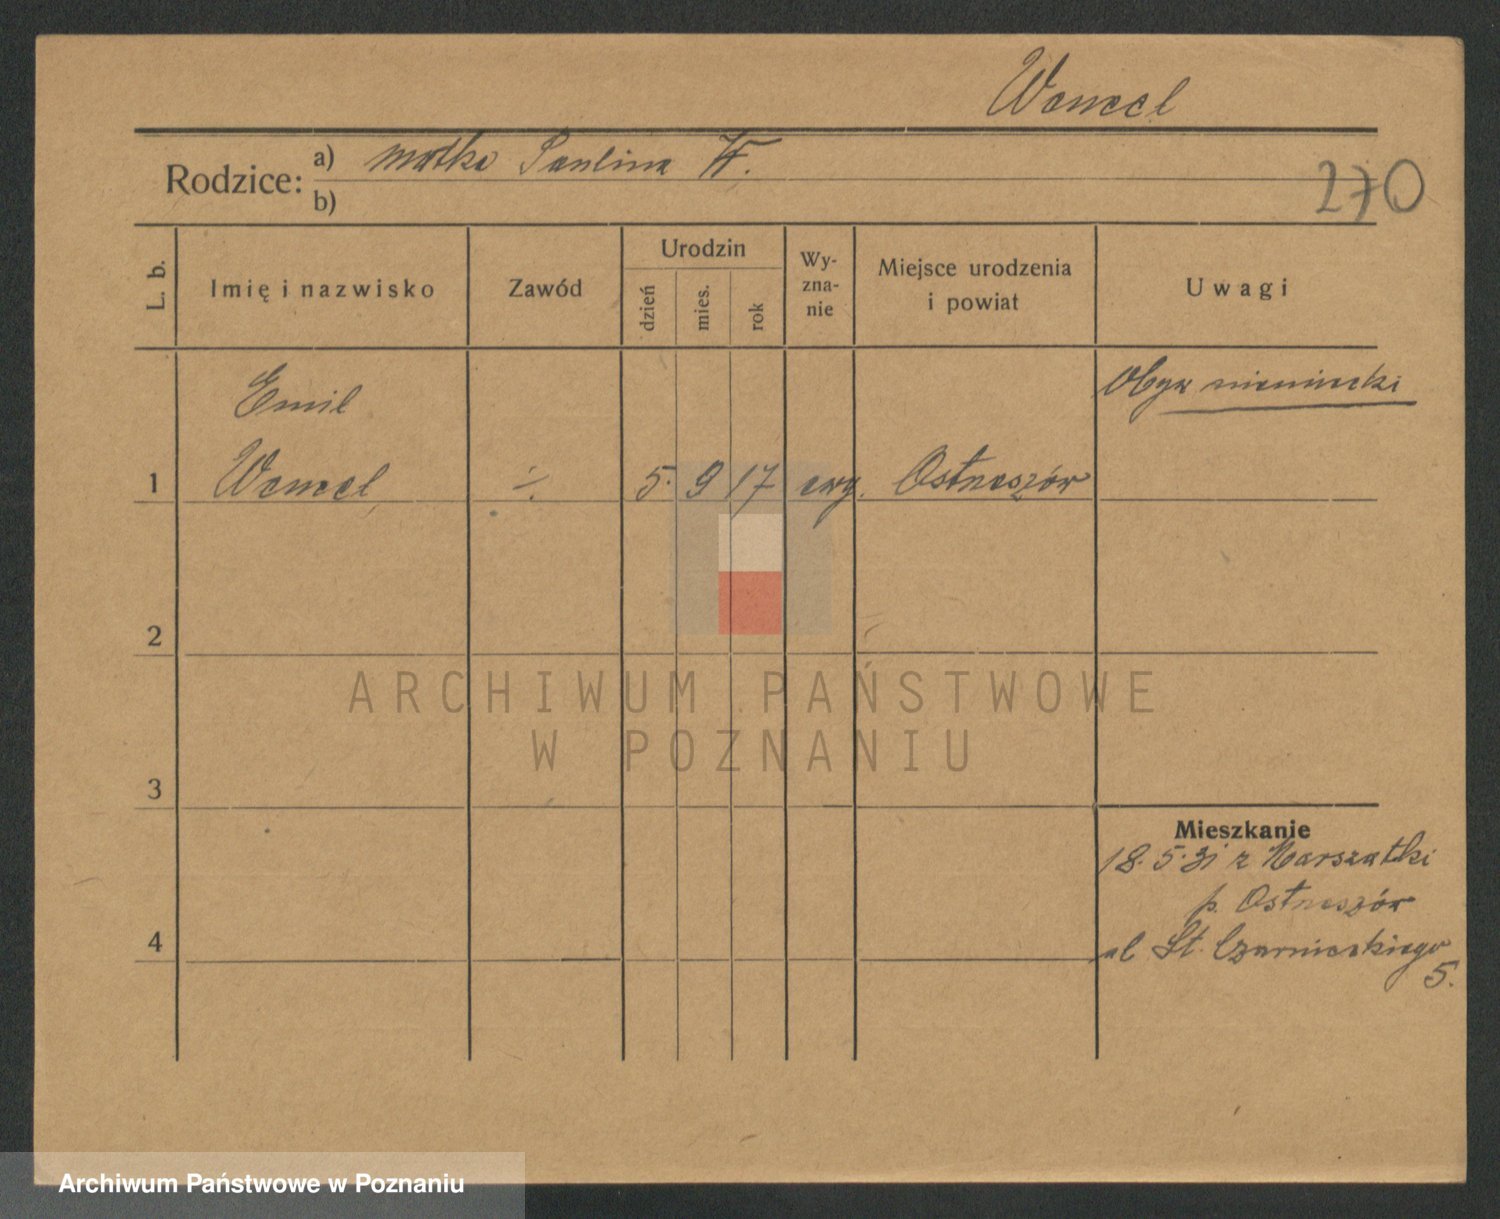 Wencel
Rodzice: a) matka Paulina W.
b)
270
L. b.
Imię i nazwisko
Zawód
Urodzin
dzień
mies.
rok
Wy-
zna-
nie
Miejsce urodzenia
i powiat
Uwagi
Emil
Obyw niemiecki
1 Wencel ÷ 5. 9 17 ewg. Ostrzeszów
2
ARCHIWUM PAŃSTWOWE
W POZNANIU
3
Mieszkanie
18. 5. 31 z Marszałki
p. Ostrzeszów
4
ul St. Czarnieckiego
5.
Archiwum Państwowe w Poznaniu